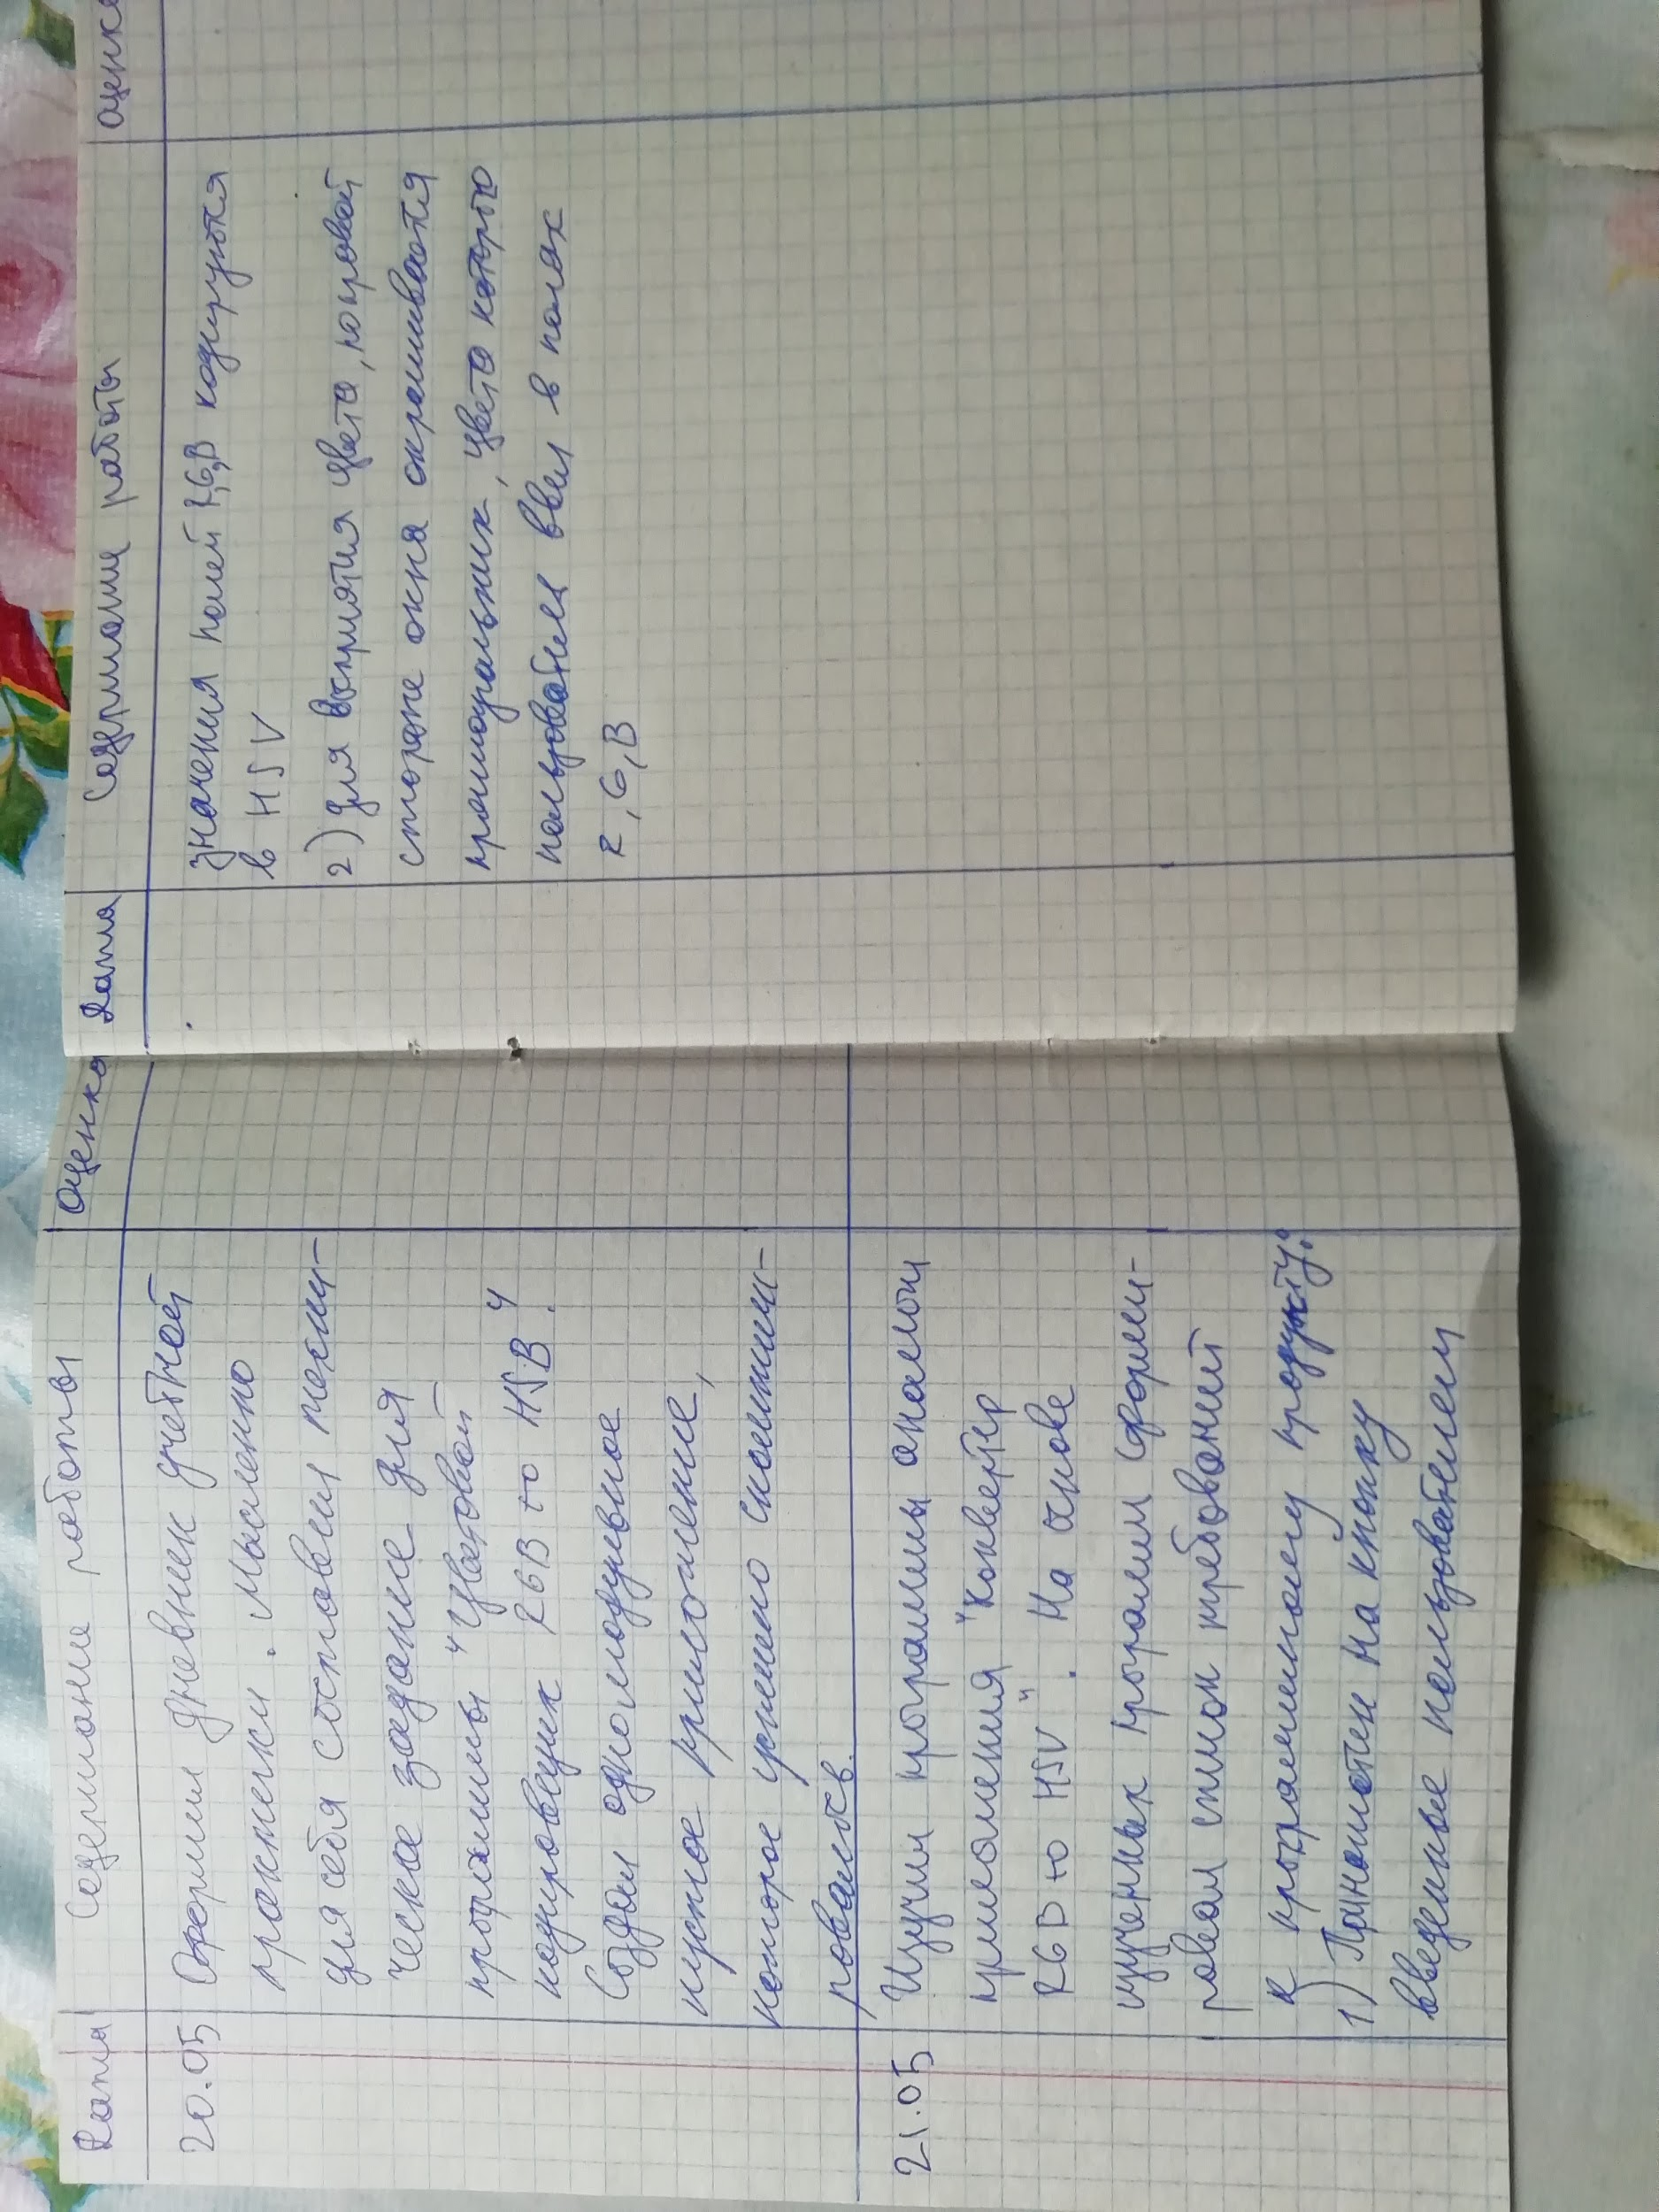 Дата Содержание работы Оценка
20.05 Оформил дневник учебной
практики. Мысленно
для себя составил техни-
ческое задание для
программы "Цветовой
кодировщик RGB to HSB".
Создал одномодульное
пустое приложение,
которое успешно скомпили-
ровалось.
21.05 Изучил программы аналоги
приложения "Конвертер
RGB to HSV". На основе
изученных программ сформи-
ровал список требований
к программному продукту:
1) По нажатию на кнопку
введенные пользователем
Дата Содержание работы Оценка
значения полей R,G,B кодируются
в HSV
2) для восприятия цвета, по правой
стороне окна окрашивается
прямоугольник, цвета которого
пользователь ввел в полях
R, G, B